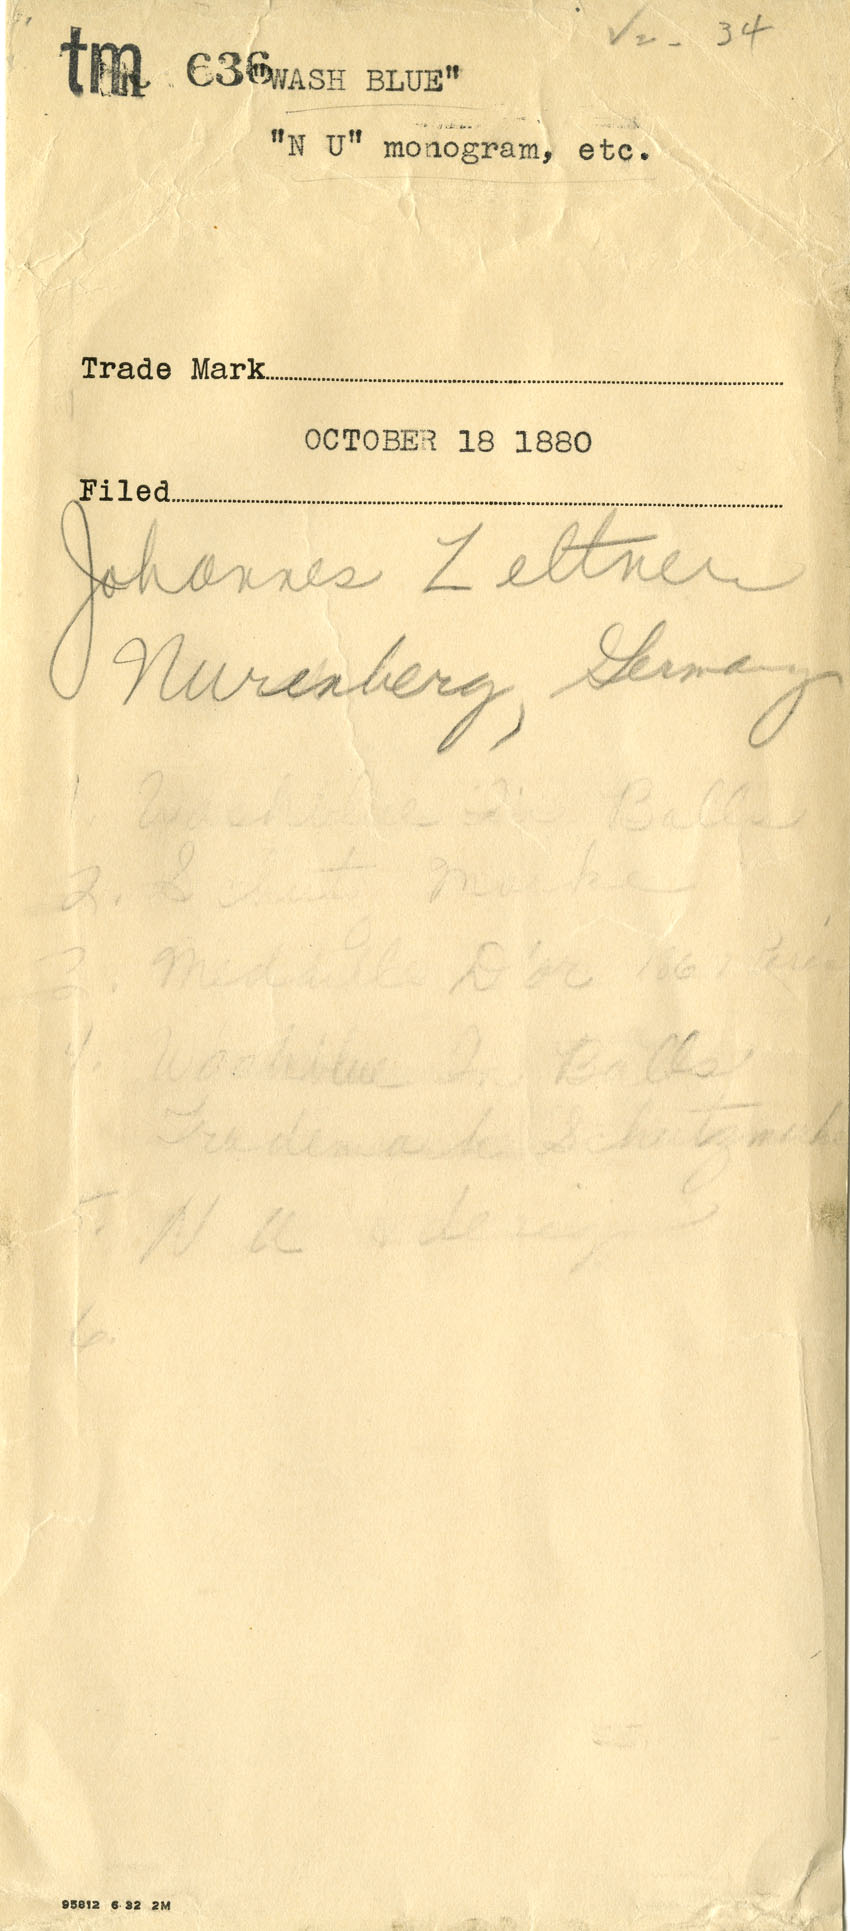 √2 - 34
tm 636 "WASH BLUE"
"N U" monogram, etc.
Trade Mark
OCTOBER 18 1880
Filed
Johannes Zeltner
Nurenberg, Germany
1. Washblue In Balls
2. Schutz Marke
3. Medaille D'or 1867 Paris
4. Washblue In Balls
Trademark Schutzmarke
5. N U design
6.
95812 6-32 2M